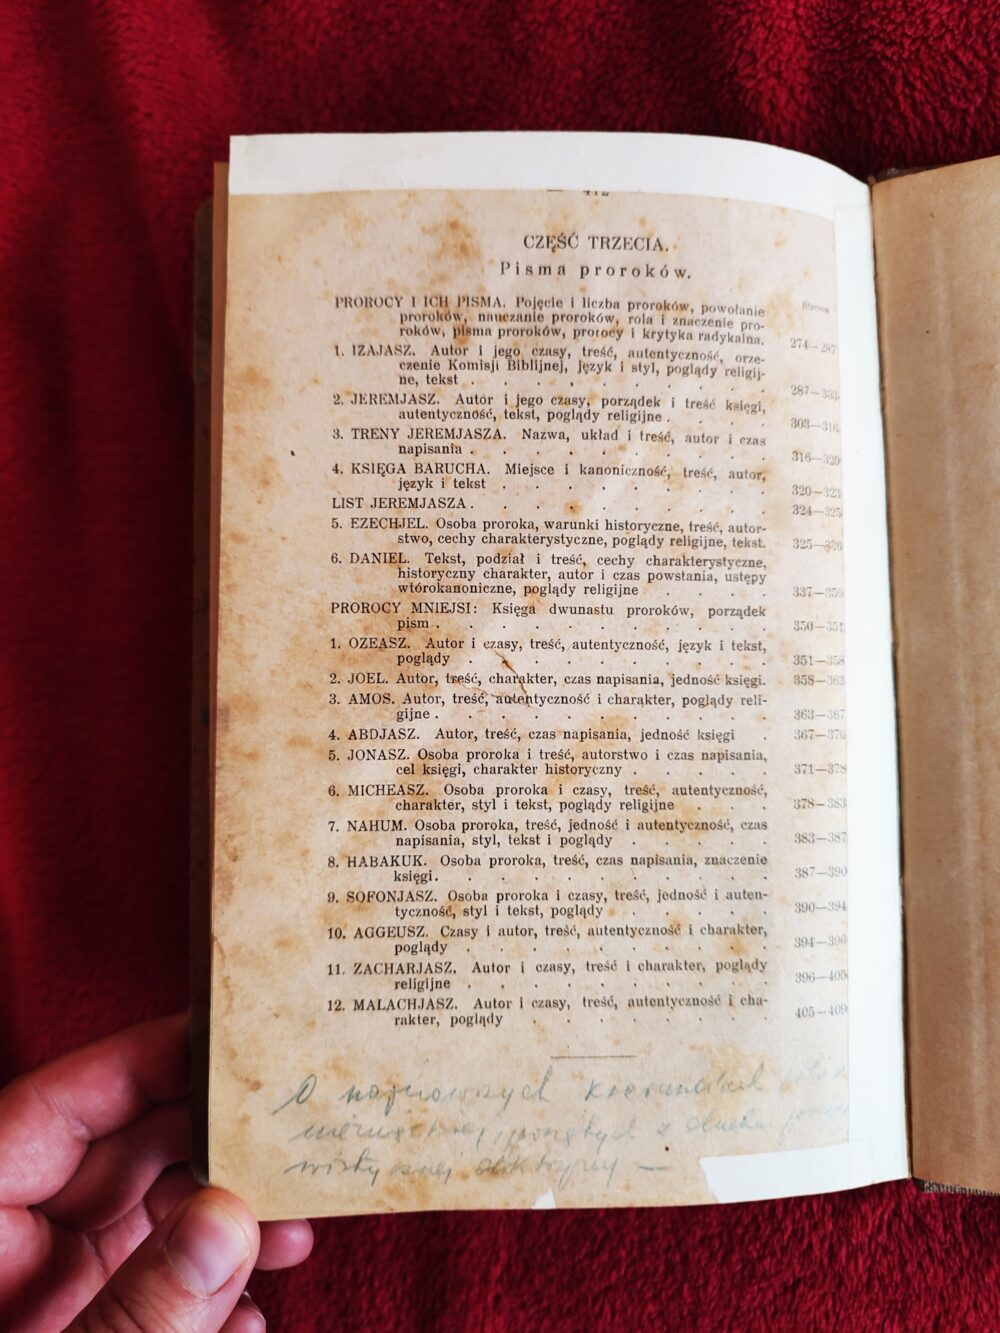 — 472
CZĘŚĆ TRZECIA.
Pisma proroków.
Strona
PROROCY I ICH PISMA. Pojęcie i liczba proroków, powołanie
proroków, nauczanie proroków, rola i znaczenie pro-
roków, pisma proroków, prorocy i krytyka radykalna. 274—287
1. IZAJASZ. Autor i jego czasy, treść, autentyczność, orze-
czenie Komisji Biblijnej, język i styl, poglądy religij-
ne, tekst . . . . . . . . . 287—303
2. JEREMJASZ. Autor i jego czasy, porządek i treść księgi,
autentyczność, tekst, poglądy religijne . . . . 303—316
3. TRENY JEREMJASZA. Nazwa, układ i treść, autor i czas
napisania . . . . . . . . . 316—320
4. KSIĘGA BARUCHA. Miejsce i kanoniczność, treść, autor,
język i tekst . . . . . . . . 320—323
LIST JEREMJASZA . . . . . . . . 324—325
5. EZECHJEL. Osoba proroka, warunki historyczne, treść, autor-
stwo, cechy charakterystyczne, poglądy religijne, tekst. 325—336
6. DANIEL. Tekst, podział i treść, cechy charakterystyczne,
historyczny charakter, autor i czas powstania, ustępy
wtórokanoniczne, poglądy religijne . . . . 337—350
PROROCY MNIEJSI: Księga dwunastu proroków, porządek
pism . . . . . . . . . . . 350—351
1. OZEASZ. Autor i czasy, treść, autentyczność, język i tekst,
poglądy . . . . . . . . . . 351—358
2. JOEL. Autor, treść, charakter, czas napisania, jedność księgi. 358—363
3. AMOS. Autor, treść, autentyczność i charakter, poglądy reli-
gijne . . . . . . . . . . . 363—367
4. ABDJASZ. Autor, treść, czas napisania, jedność księgi . 367—370
5. JONASZ. Osoba proroka i treść, autorstwo i czas napisania,
cel księgi, charakter historyczny . . . . . 371—378
6. MICHEASZ. Osoba proroka i czasy, treść, autentyczność,
charakter, styl i tekst, poglądy religijne . . . 378—383
7. NAHUM. Osoba proroka, treść, jedność i autentyczność, czas
napisania, styl, tekst i poglądy . . . . . 383—387
8. HABAKUK. Osoba proroka, treść, czas napisania, znaczenie
księgi . . . . . . . . . . . 387—390
9. SOFONJASZ. Osoba proroka i czasy, treść, jedność i auten-
tyczność, styl i tekst, poglądy . . . . . 390—394
10. AGGEUSZ. Czasy i autor, treść, autentyczność i charakter,
poglądy . . . . . . . . . . 394—396
11. ZACHARJASZ. Autor i czasy, treść i charakter, poglądy
religijne . . . . . . . . . . 396—405
12. MALACHJASZ. Autor i czasy, treść, autentyczność i cha-
rakter, poglądy . . . . . . . . 405—409
O najnowszych kierunkach
z ducha
doktryny —